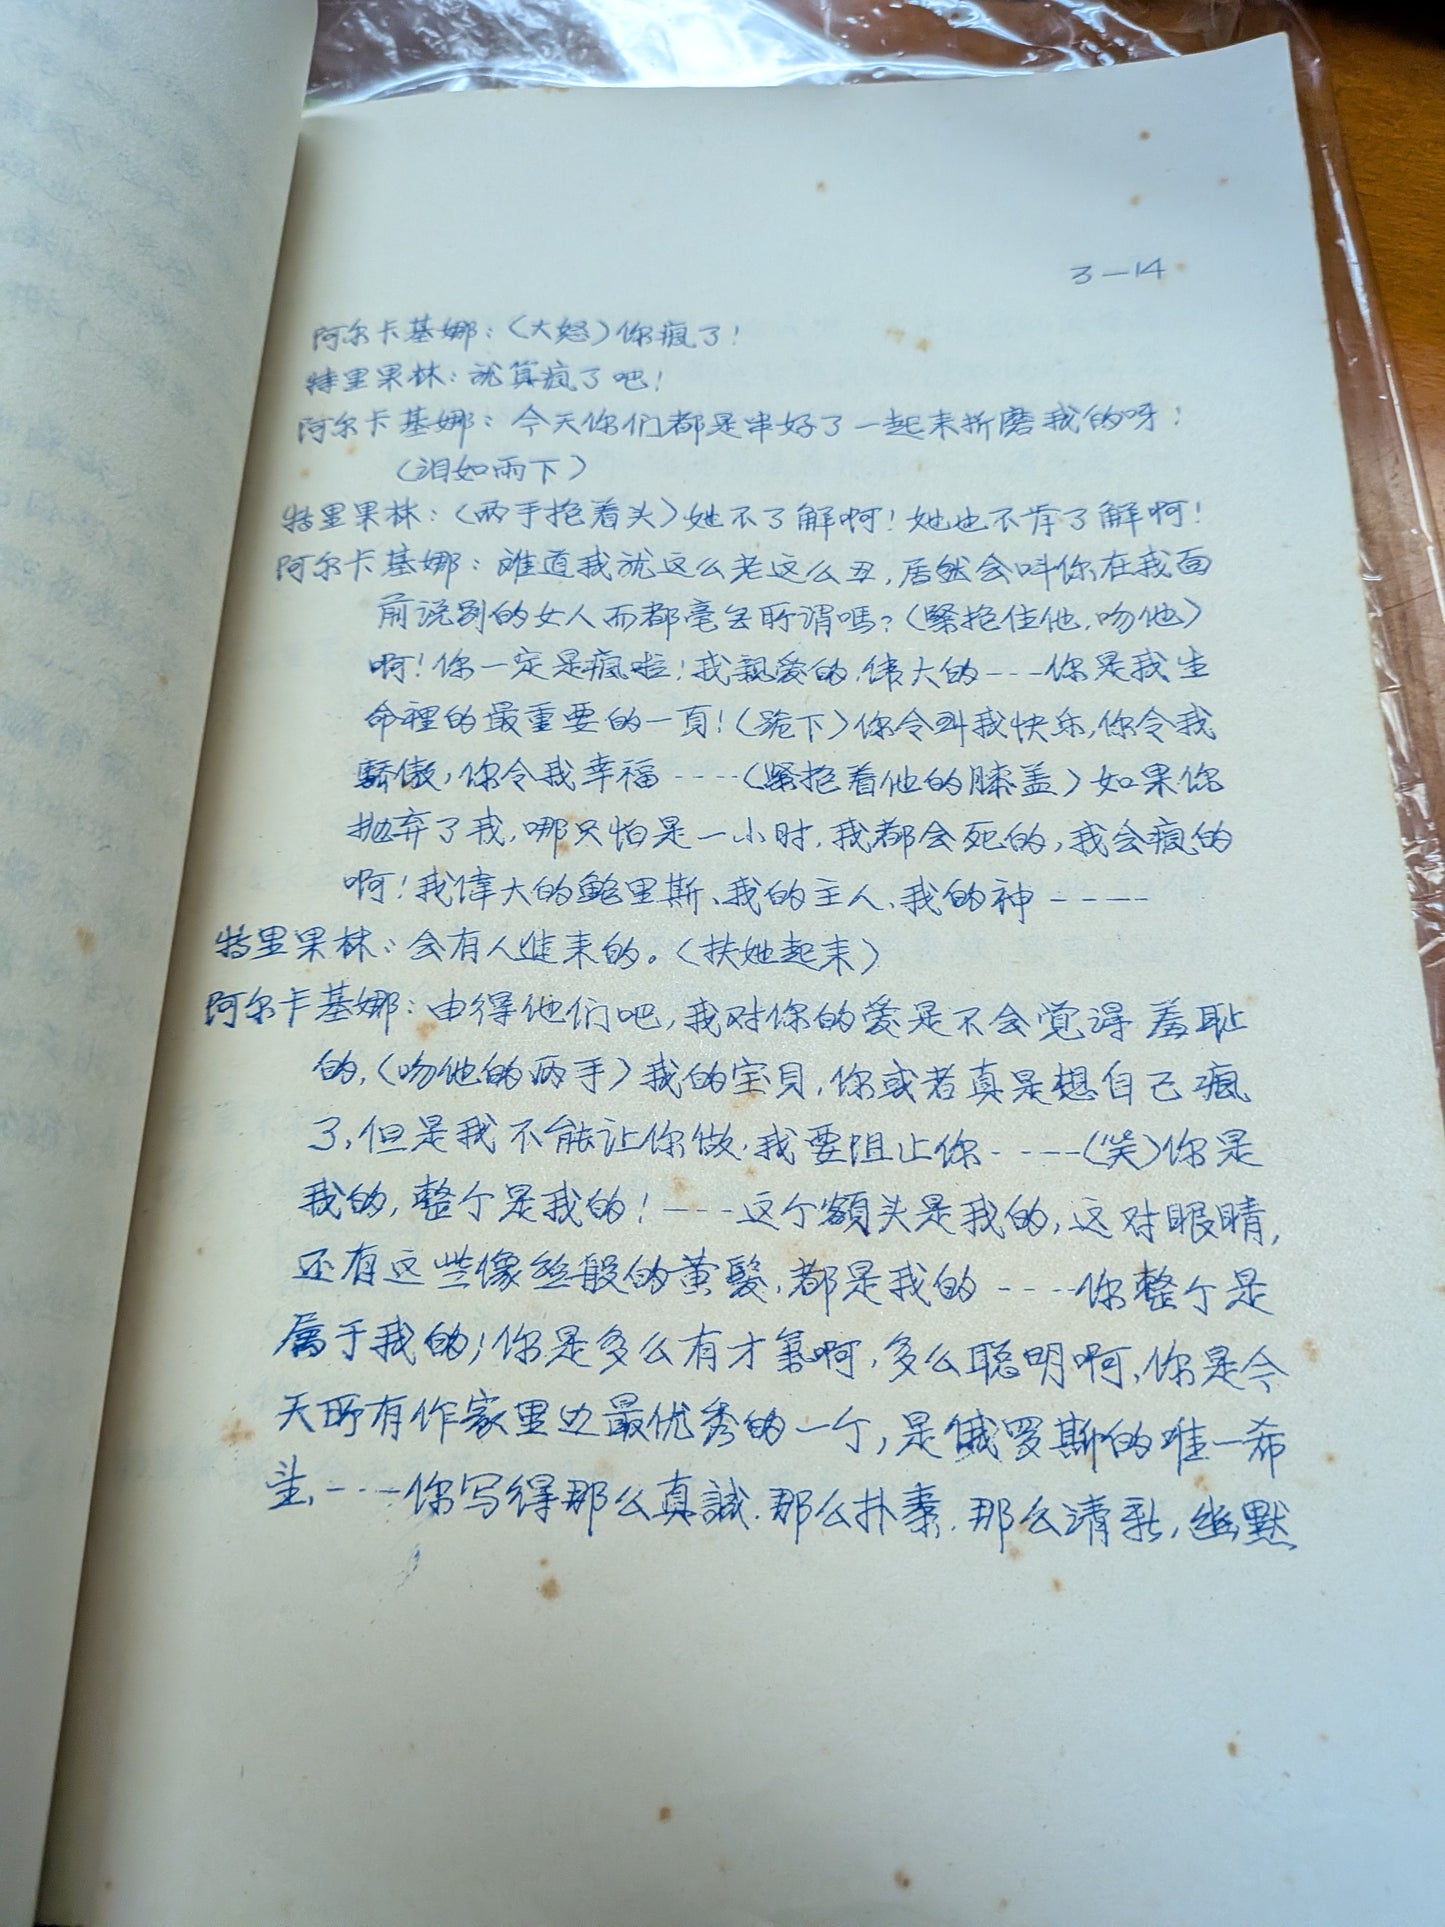 3—14
阿尔卡基娜：（大怒）你疯了！
特里果林：就算疯了吧！
阿尔卡基娜：今天你们都是串好了一起来折磨我的呀！
（泪如雨下）
特里果林：（两手抱着头）她不了解啊！她也不肯了解啊！
阿尔卡基娜：难道我就这么老这么丑，居然会叫你在我面
前说别的女人而都毫无所谓嗎？（緊抱住他，吻他）
啊！你一定是疯啦！我親爱的，偉大的---你是我生
命裡的最重要的一頁！（跪下）你令我快乐，你令我
驕傲，你令我幸福----（緊抱着他的膝盖）如果你
抛弃了我，哪只怕是一小时，我都会死的，我会疯的
啊！我偉大的鲍里斯、我的主人、我的神----
特里果林：会有人进来的。（扶她起来）
阿尔卡基娜：由得他们吧，我对你的爱是不会觉得羞耻
的，（吻他的两手）我的宝贝，你或者真是想自己疯
了，但是我不能让你做，我要阻止你----（笑）你是
我的，整个是我的！---这个額头是我的，这对眼睛，
还有这些像丝般的黄髮，都是我的----你整个是
属于我的；你是多么有才氣啊，多么聪明啊，你是今
天所有作家里边最优秀的一个，是俄罗斯的唯一希
望，---你写得那么真誠，那么朴素，那么清新，幽默